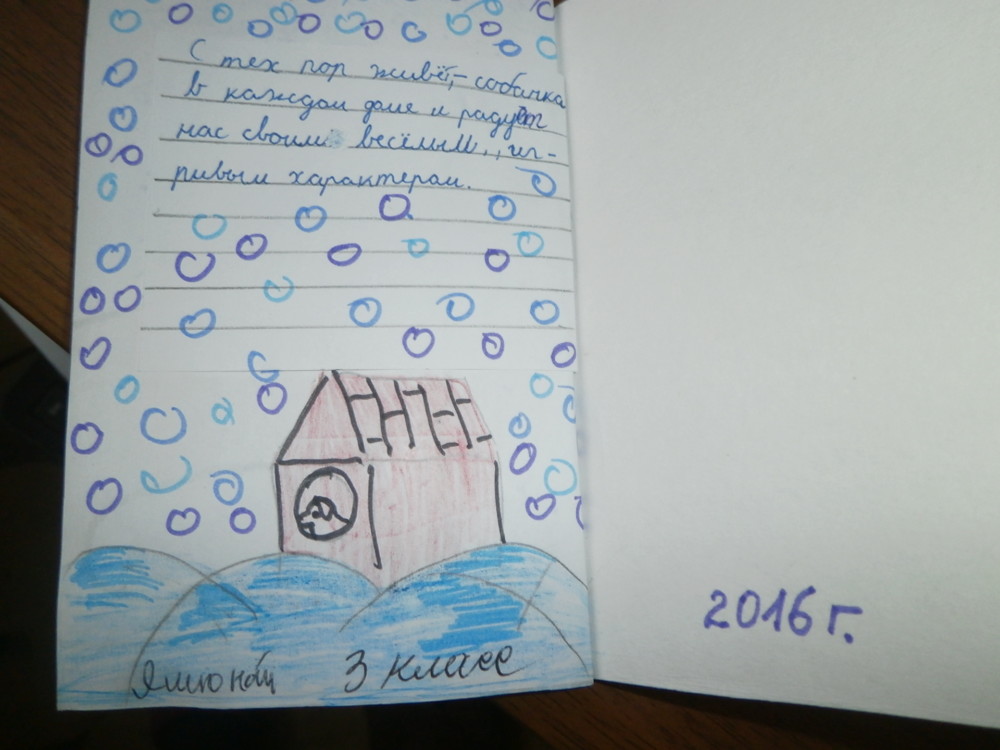 С тех пор живёт, собачка
в каждом доме и радует
нас своим весёлым, иг-
ривым характером.
3 класс
2016 г.